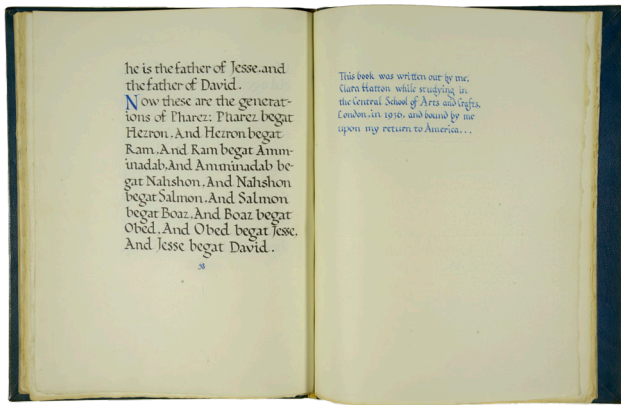 he is the father of Jesse.and
the father of David.
Now these are the generat-
ions of Pharez: Pharez begat
Hezron. And Hezron begat
Ram. And Ram begat Amm-
inadab, And Amminadab be-
gat Nahshon, And Nahshon
begat Salmon, And Salmon
begat Boaz, And Boaz begat
Obed, And Obed begat Jesse,
And Jesse begat David.
38
This book was written out by me,
Clara Hatton while studying in
the Central School of Arts and Crafts,
London, in 1936, and bound by me
upon my return to America...